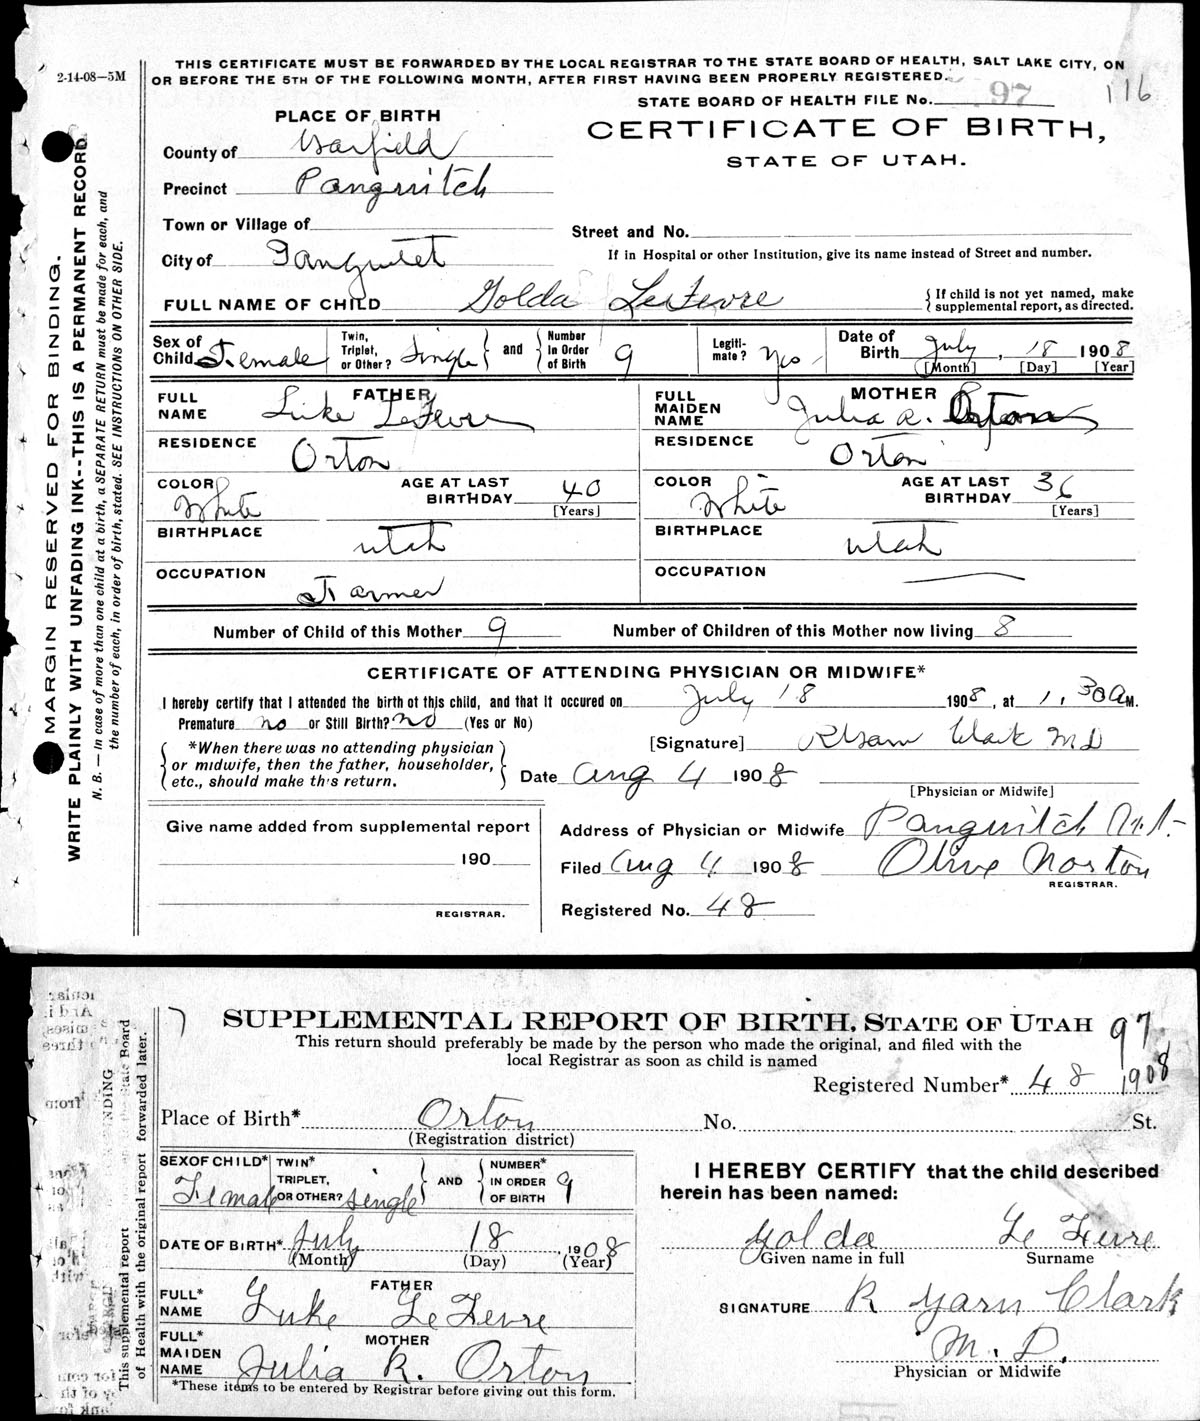 2-14-08—5M
THIS CERTIFICATE MUST BE FORWARDED BY THE LOCAL REGISTRAR TO THE STATE BOARD OF HEALTH, SALT LAKE CITY, ON
OR BEFORE THE 5TH OF THE FOLLOWING MONTH, AFTER FIRST HAVING BEEN PROPERLY REGISTERED.
STATE BOARD OF HEALTH FILE No. 97 116
PLACE OF BIRTH
CERTIFICATE OF BIRTH,
STATE OF UTAH.
County of Garfield
Precinct Panguitch
Town or Village of
Street and No.
City of Panguitch
If in Hospital or other Institution, give its name instead of Street and number.
FULL NAME OF CHILD Golda LeFevre
{ If child is not yet named, make
supplemental report, as directed.
Sex of Child Female
Twin, Triplet, or Other? Single } and { Number in Order of Birth 9
Legiti-mate? Yes
Date of Birth July, 18 1908
[Month] [Day] [Year]
FATHER
FULL NAME Luke LeFevre
MOTHER
FULL MAIDEN NAME Julia R. Orton
RESIDENCE Orton
RESIDENCE Orton
COLOR White
AGE AT LAST BIRTHDAY 40
[Years]
COLOR White
AGE AT LAST BIRTHDAY 36
[Years]
BIRTHPLACE Utah
BIRTHPLACE Utah
OCCUPATION Farmer
OCCUPATION
Number of Child of this Mother 9 Number of Children of this Mother now living 8
CERTIFICATE OF ATTENDING PHYSICIAN OR MIDWIFE*
I hereby certify that I attended the birth of this child, and that it occured on July 18 1908, at 1.30 A M.
Premature no or Still Birth? no (Yes or No)
{ *When there was no attending physician
or midwife, then the father, householder,
etc., should make th's return. }
[Signature] Clark M D
Date Aug 4 1908
[Physician or Midwife]
Give name added from supplemental report
190
REGISTRAR.
Address of Physician or Midwife Panguitch
Filed Aug 4 1908 Olive Norton
REGISTRAR.
Registered No. 48
MARGIN RESERVED FOR BINDING.
WRITE PLAINLY WITH UNFADING INK--THIS IS A PERMANENT RECORD.
N. B. — In case of more than one child at a birth, a SEPARATE RETURN must be made for each, and
the number of each, in order of birth, stated. SEE INSTRUCTIONS ON OTHER SIDE.
SUPPLEMENTAL REPORT OF BIRTH. STATE OF UTAH 97
This return should preferably be made by the person who made the original, and filed with the
local Registrar as soon as child is named
Registered Number* 48 1908
Place of Birth* Orton No. St.
(Registration district)
SEX OF CHILD* Female
TWIN* TRIPLET, OR OTHER? Single } AND { NUMBER* IN ORDER OF BIRTH 9
DATE OF BIRTH* July 18, 1908
(Month) (Day) (Year)
FATHER
FULL* NAME Luke LeFevre
MOTHER
FULL* MAIDEN NAME Julia R. Orton
*These items to be entered by Registrar before giving out this form.
I HEREBY CERTIFY that the child described
herein has been named:
Golda Le Fevre
Given name in full Surname
SIGNATURE R Clark
M. D.
Physician or Midwife
This supplemental report
of Health with the original report forwarded later.